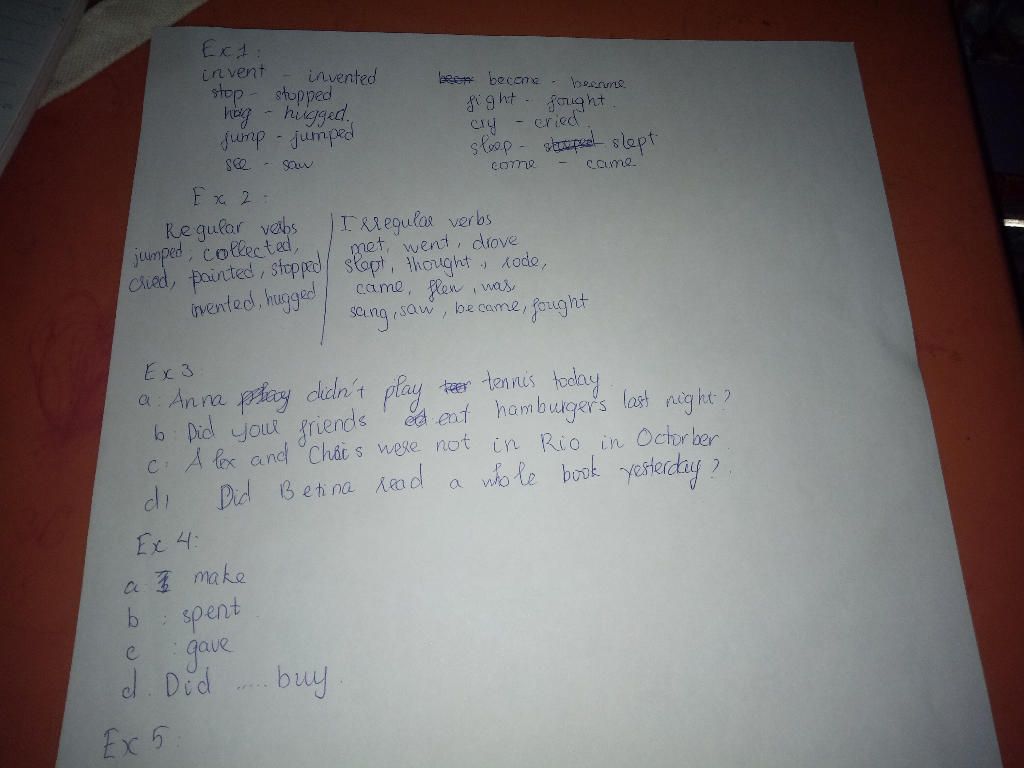 Ex 1:
invent - invented become - became
stop - stopped fight - fought.
hug - hugged. cry - cried.
jump - jumped sleep - slept
see - saw come - came
Ex 2:
Regular verbs Irregular verbs
jumped, collected, met, went, drove
cried, painted, stopped slept, thought, rode,
invented, hugged came, flew, was
sang, saw, became, fought
Ex 3
a: Anna didn't play tennis today
b: Did your friends eat hamburgers last night?
c: Alex and Chris were not in Rio in Octorber
d, Did Betina read a whole book yesterday?
Ex 4:
a make
b : spent
c : gave
d. Did ..... buy.
Ex 5: